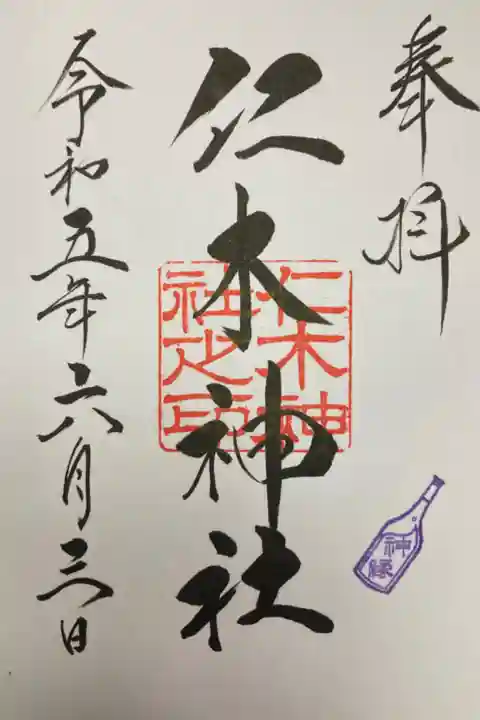 奉拝
仁木神社
仁木神
社之印
令和五年六月三日
神